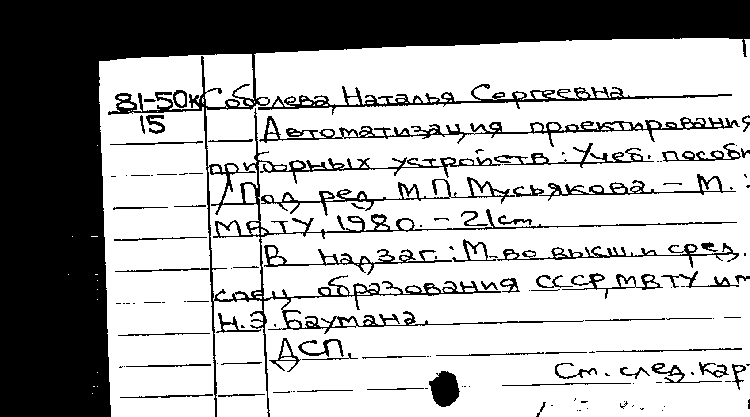 81-50к Соболева, Наталья Сергеевна.
15
Автоматизация проектирования
приборных устройств: Учеб. пособи
/ Под ред. М.П. Мусьякова. – М.:
МВТУ, 1980. – 21 см.
В надзаг.: М-во высш. и сред.
спец. образования СССР, МВТУ им
Н.Э. Баумана.
ДСП.
См. след. кар